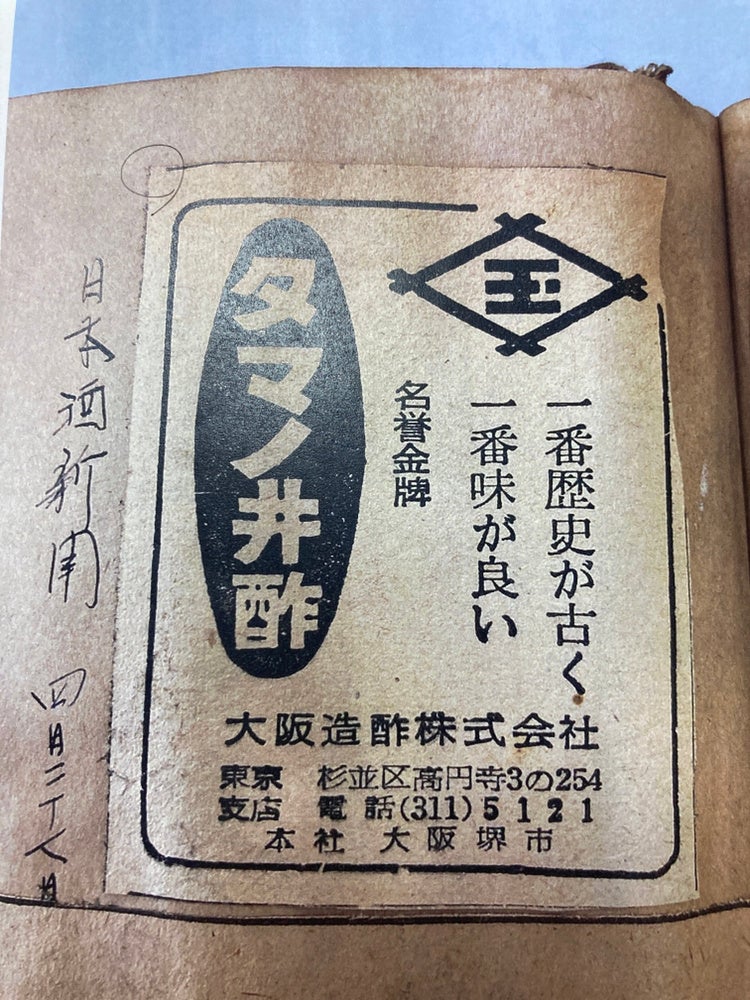 玉
一番歴史が古く
一番味が良い
名誉金牌
タマノ井酢
大阪造酢株式会社
東京支店 杉並区高円寺3の254
電話(311)5121
本社 大阪堺市
日本酒新聞 四月二十八日